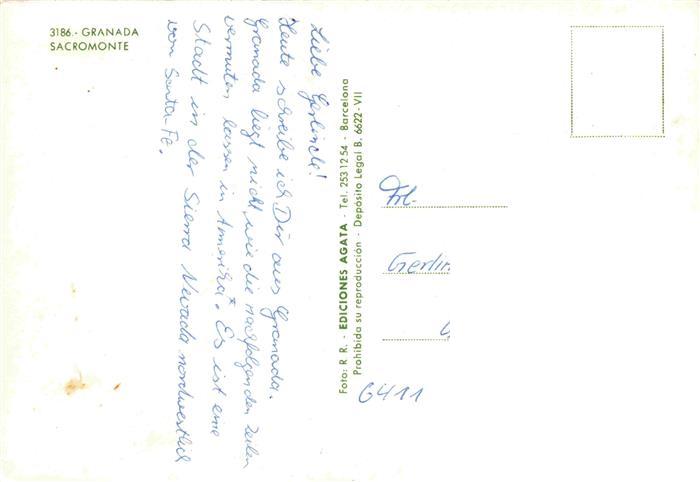 3186.- GRANADA
SACROMONTE
Liebe Gerlinde!
Heute schreibe ich Dir aus Granada.
Granada liegt nicht, wie die nachfolgenden Zeilen
vermuten lassen in Amerika. Es ist eine
Stadt in der Sierra Nevada nordwestlich
von Santa Fé.
Foto: R. R. - EDICIONES AGATA - Tel. 253 12 54 - Barcelona
Prohibida su reproducción - Depósito Legal B. 6622-VII
Frl.
Gerlin
6411